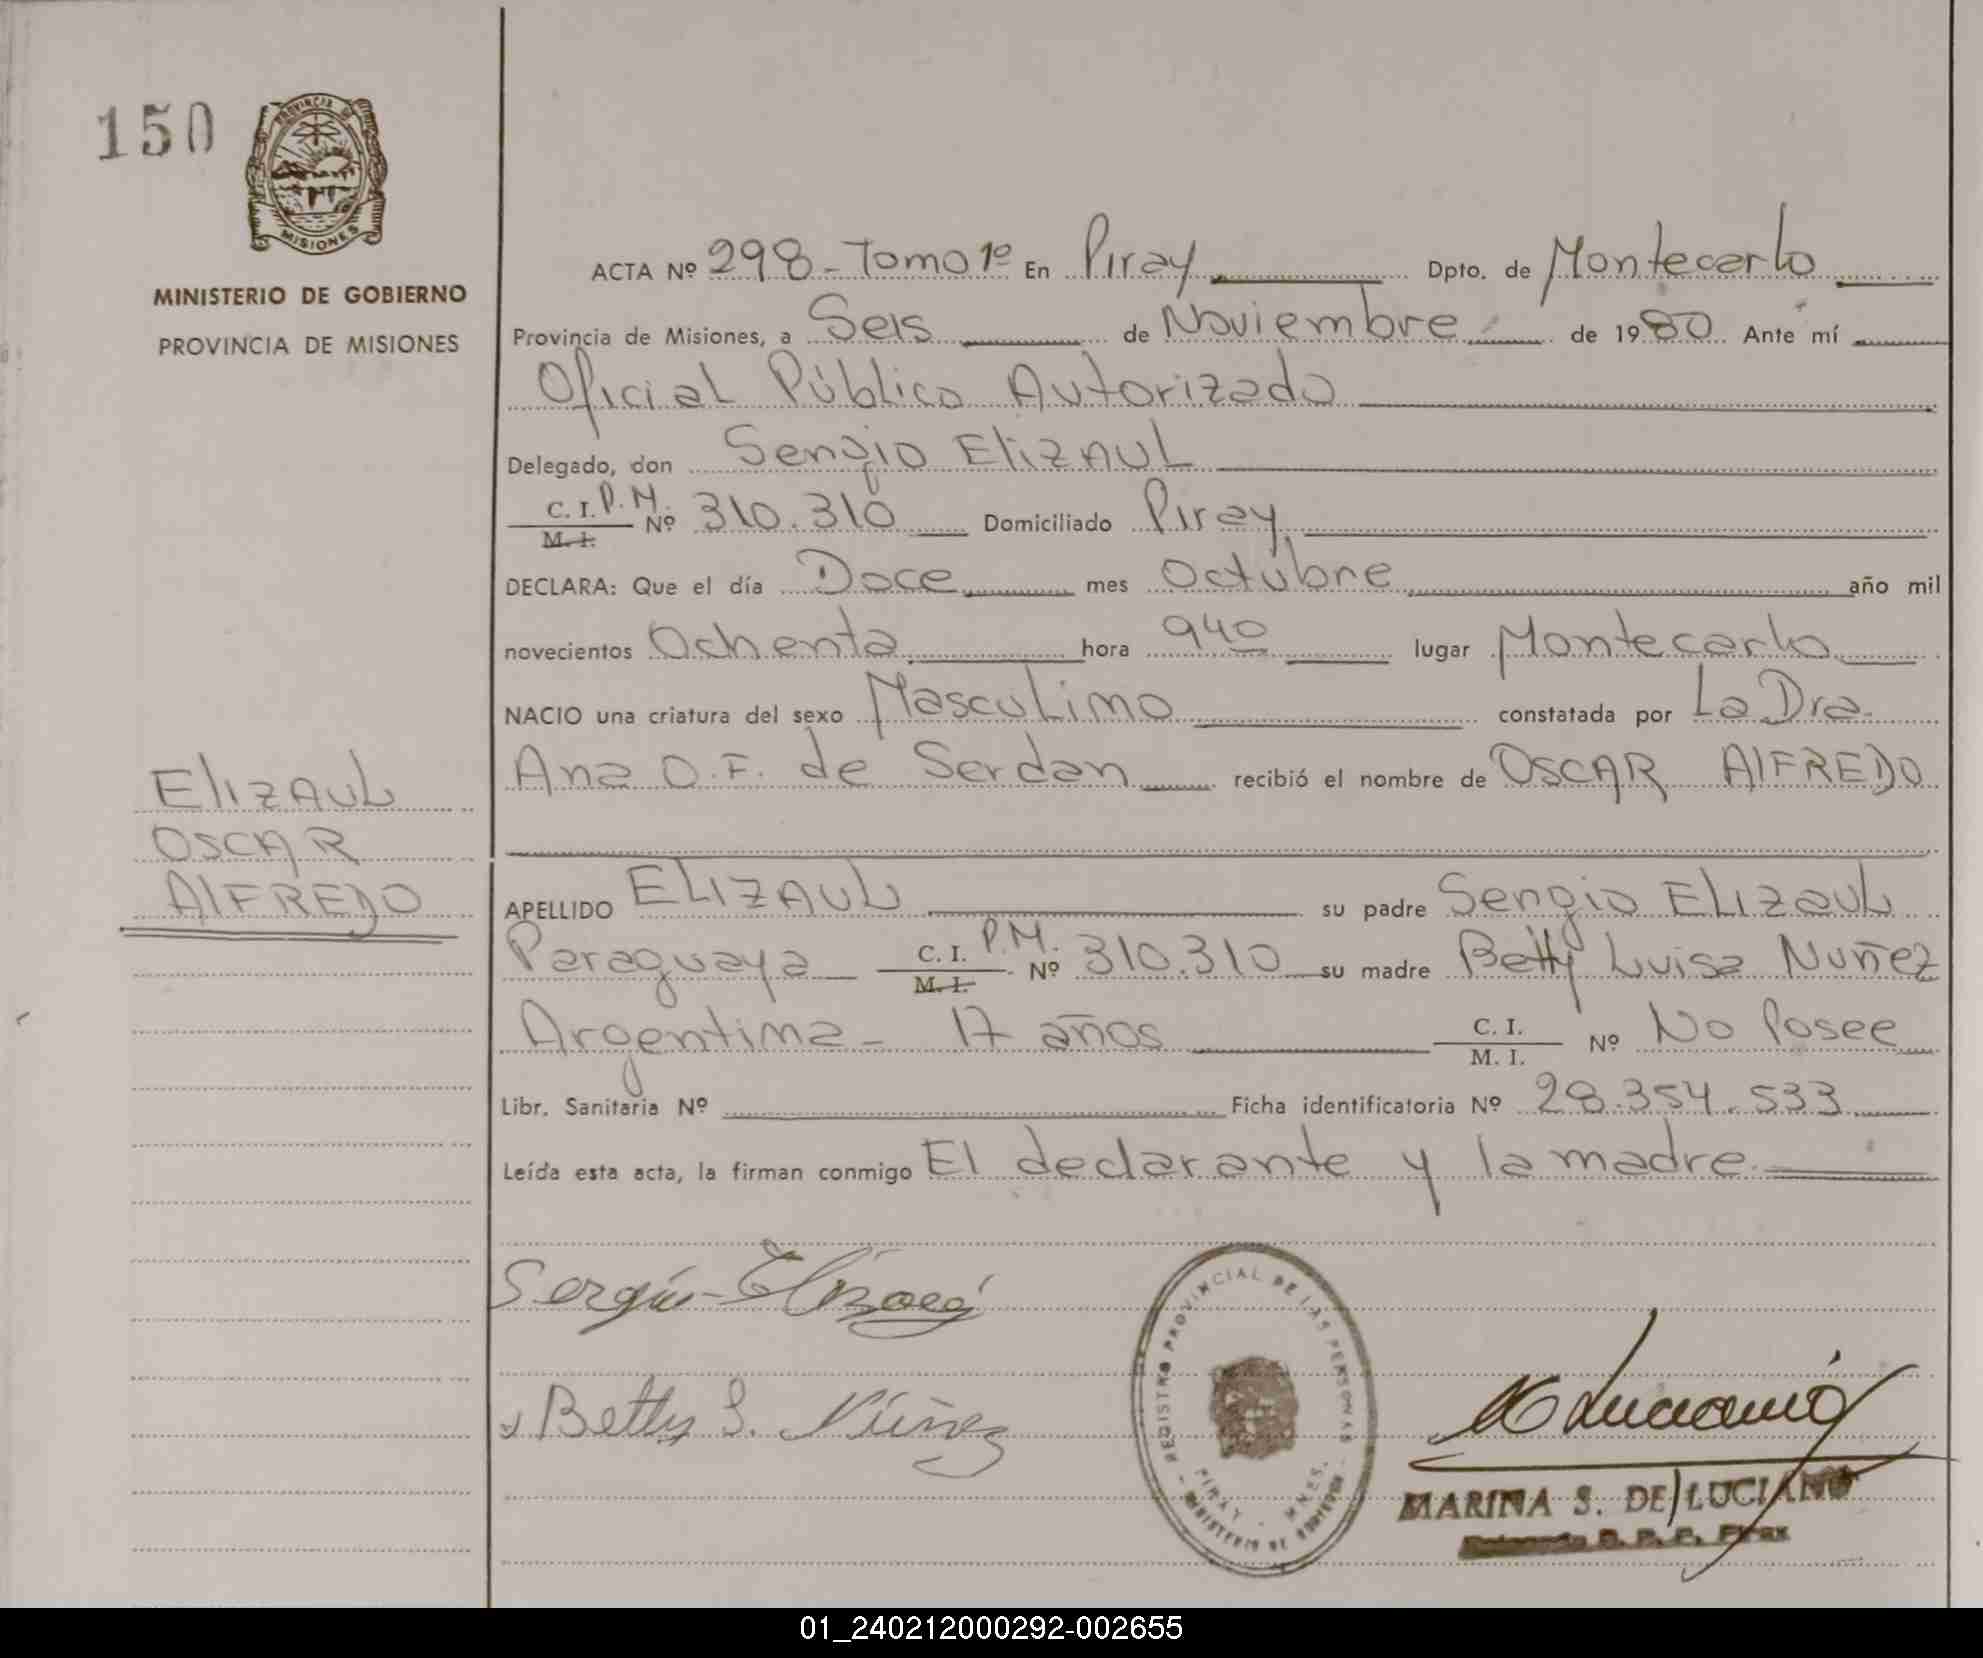 150
PROVINCIA DE
MISIONES
MINISTERIO DE GOBIERNO
PROVINCIA DE MISIONES
ACTA Nº 298 - Tomo 1º En Piray Dpto. de Montecarlo
Provincia de Misiones, a Seis de Noviembre de 1980 Ante mí
Oficial Público Autorizado
Delegado, don Sergio ElizAUL
C. I. P.M. Nº 310.310 Domiciliado Piray
M. I.
DECLARA: Que el día Doce mes Octubre año mil
novecientos Ochenta hora 940 lugar Montecarlo
NACIO una criatura del sexo Masculino constatada por La Dra.
Ana O.F. de Serdan recibió el nombre de OSCAR AlFREDO
ElizAUL
OSCAR
AlFREDO
APELLIDO ELIZAUL su padre Sergio ELIZAUL
Paraguaya C. I. P.M. Nº 310.310 su madre Betty Luisa Nuñez
M. I.
Argentina - 17 años C. I. Nº No Posee
M. I.
Libr. Sanitaria Nº Ficha identificatoria Nº 28.354.533
Leída esta acta, la firman conmigo El declarante y la madre.
Sergio
Betty Núñez
REGISTRO PROVINCIAL DE LAS PERSONAS
PIRAY - MNES.
MINISTERIO DE GOBIERNO
MARINA S. DE LUCIANO
R. P. P. Piray
01_240212000292-002655